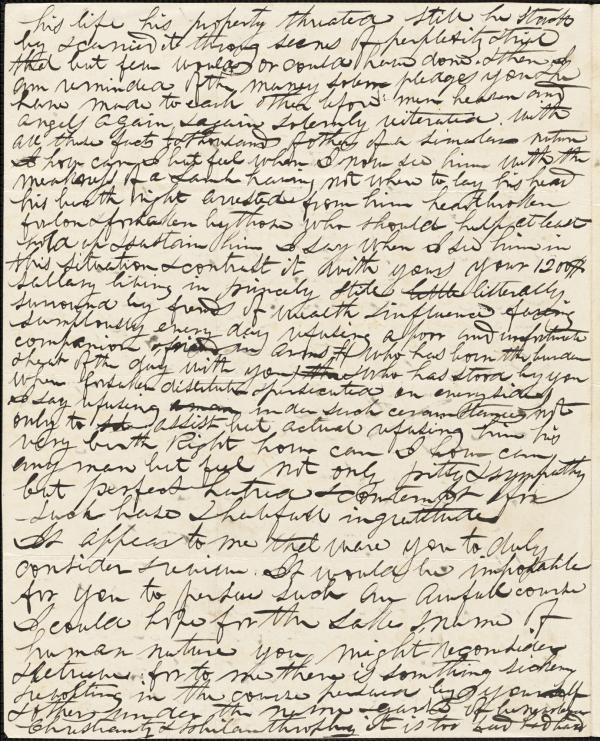 his life his property threated still he stood
by & carried it throug seens of perplexity & trial
that but few would or could have done. & then I
am reminded of the maney solem pledges you &c he
have made to each other before men heaven and
angels again & again solemly reiterated. with
all these facts & thousand of others of a similar nature
& how can I but feel when I now see him with the
meakness of a Lamb having not where to lay his head
his birth right arrested from him heartbroken
forlorn & forsaken by those who should help at least
hold up & sustain him I say when I see him in
this situation & contrast it with yours your 1200$
sallary living in princely stile litterally
suround by frends of wealth & influence faring
sumptously every day refusing a poor and unfortunate
companion & friend in arms who has born the burden
& heat of the day with you who has stood by you
when forsaken distitute & persecuted on every side
I say refusing under such cercumstances not
only to assist but actual refusing him his
very birth Right how can I how can
any man but feel not only pitty & sympathy
but perfect hatred & contempt for
such base & ungratitude
It appears to me that ware you to duly
consider & review it would be impossable
for you to persue such an awful course
I could hope for the sake & name of
human nature you might reconsider
& retrieve. for to me there is something sickeny
revolting in the course persued by yourself
& others under the name & garb of benevolence
Christianity & philanthrophy it is too bad